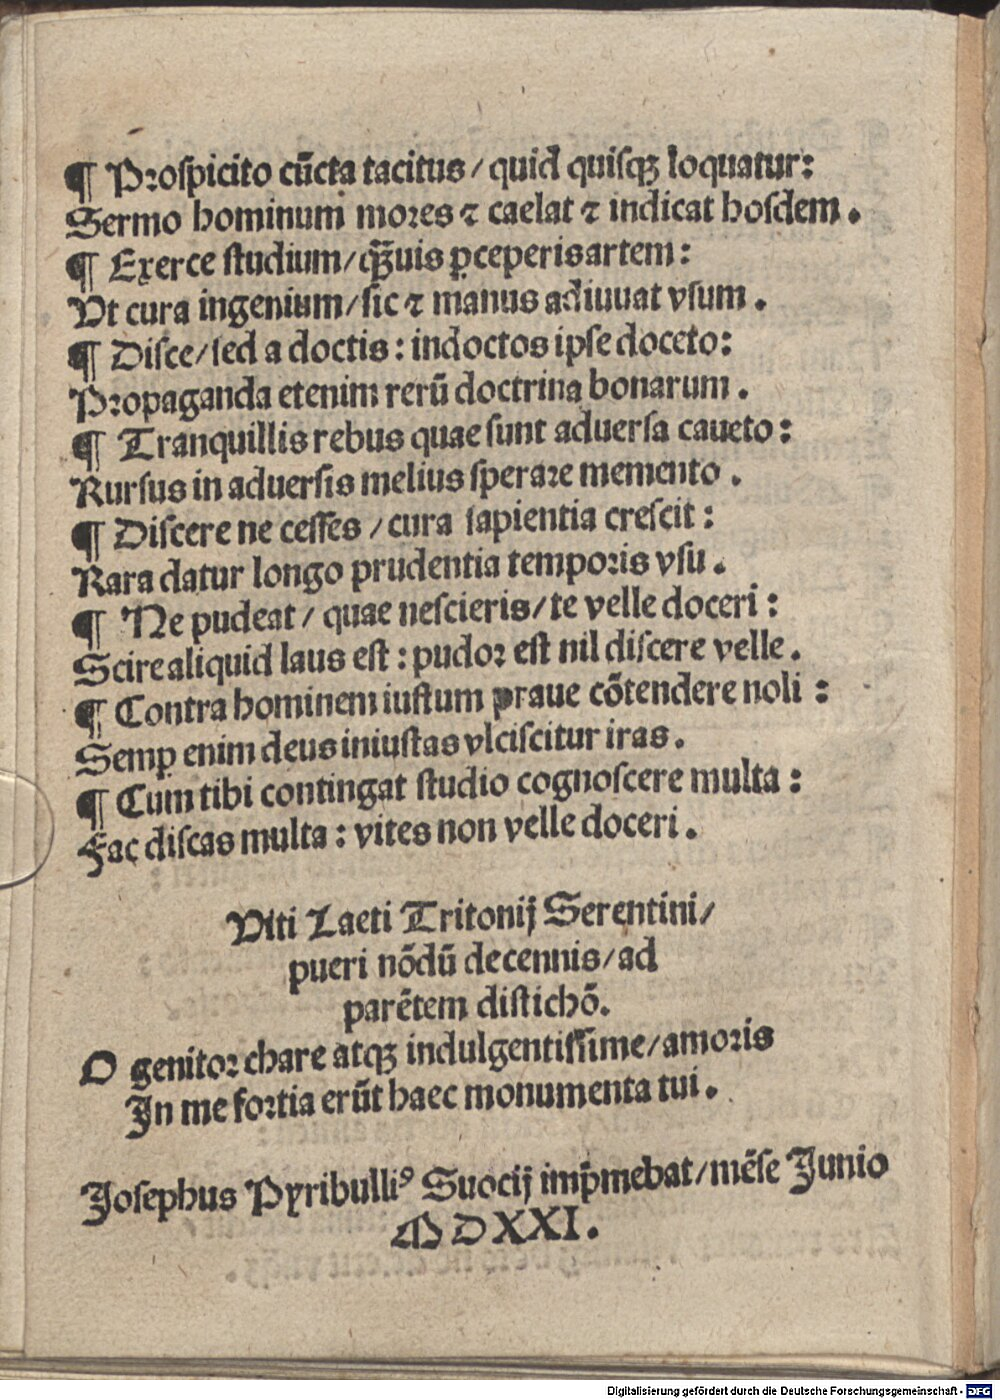 ¶ Proſpicito cūcta tacitus / quid quiſqꝫ loquatur:
Sermo hominum mores ⁊ caelat ⁊ indicat hoſdem.
¶ Exerce ſtudium / qꝫ̃uis ꝑceperis artem:
Vt cura ingenium / ſic ⁊ manus adiuuat vſum.
¶ Diſce / ſed a doctis: indoctos ipſe doceto:
Propaganda etenim rerū doctrina bonarum.
¶ Tranquillis rebus quae ſunt aduerſa caueto:
Rurſus in aduerſis melius ſperare memento.
¶ Diſcere ne ceſſes / cura ſapientia creſcit:
Rara datur longo prudentia temporis vſu.
¶ Ne pudeat / quae neſcieris / te velle doceri:
Scire aliquid laus eſt: pudor eſt nil diſcere velle.
¶ Contra hominem iuſtum praue cōtendere noli:
Semꝑ enim deus iniuſtas vlciſcitur iras.
¶ Cum tibi contingat ſtudio cognoſcere multa:
Fac diſcas multa: vites non velle doceri.
Viti Laeti Tritonij Serentini /
pueri nōdū decennis / ad
parētem diſtichō.
O genitor chare atqꝫ indulgentiſſime / amoris
In me fortia erūt haec monumenta tui.
Joſephus Pyribulliꝰ Suocij imp̄mebat / mēſe Junio
MDXXI.
Digitalisierung gefördert durch die Deutsche Forschungsgemeinschaft - DFG